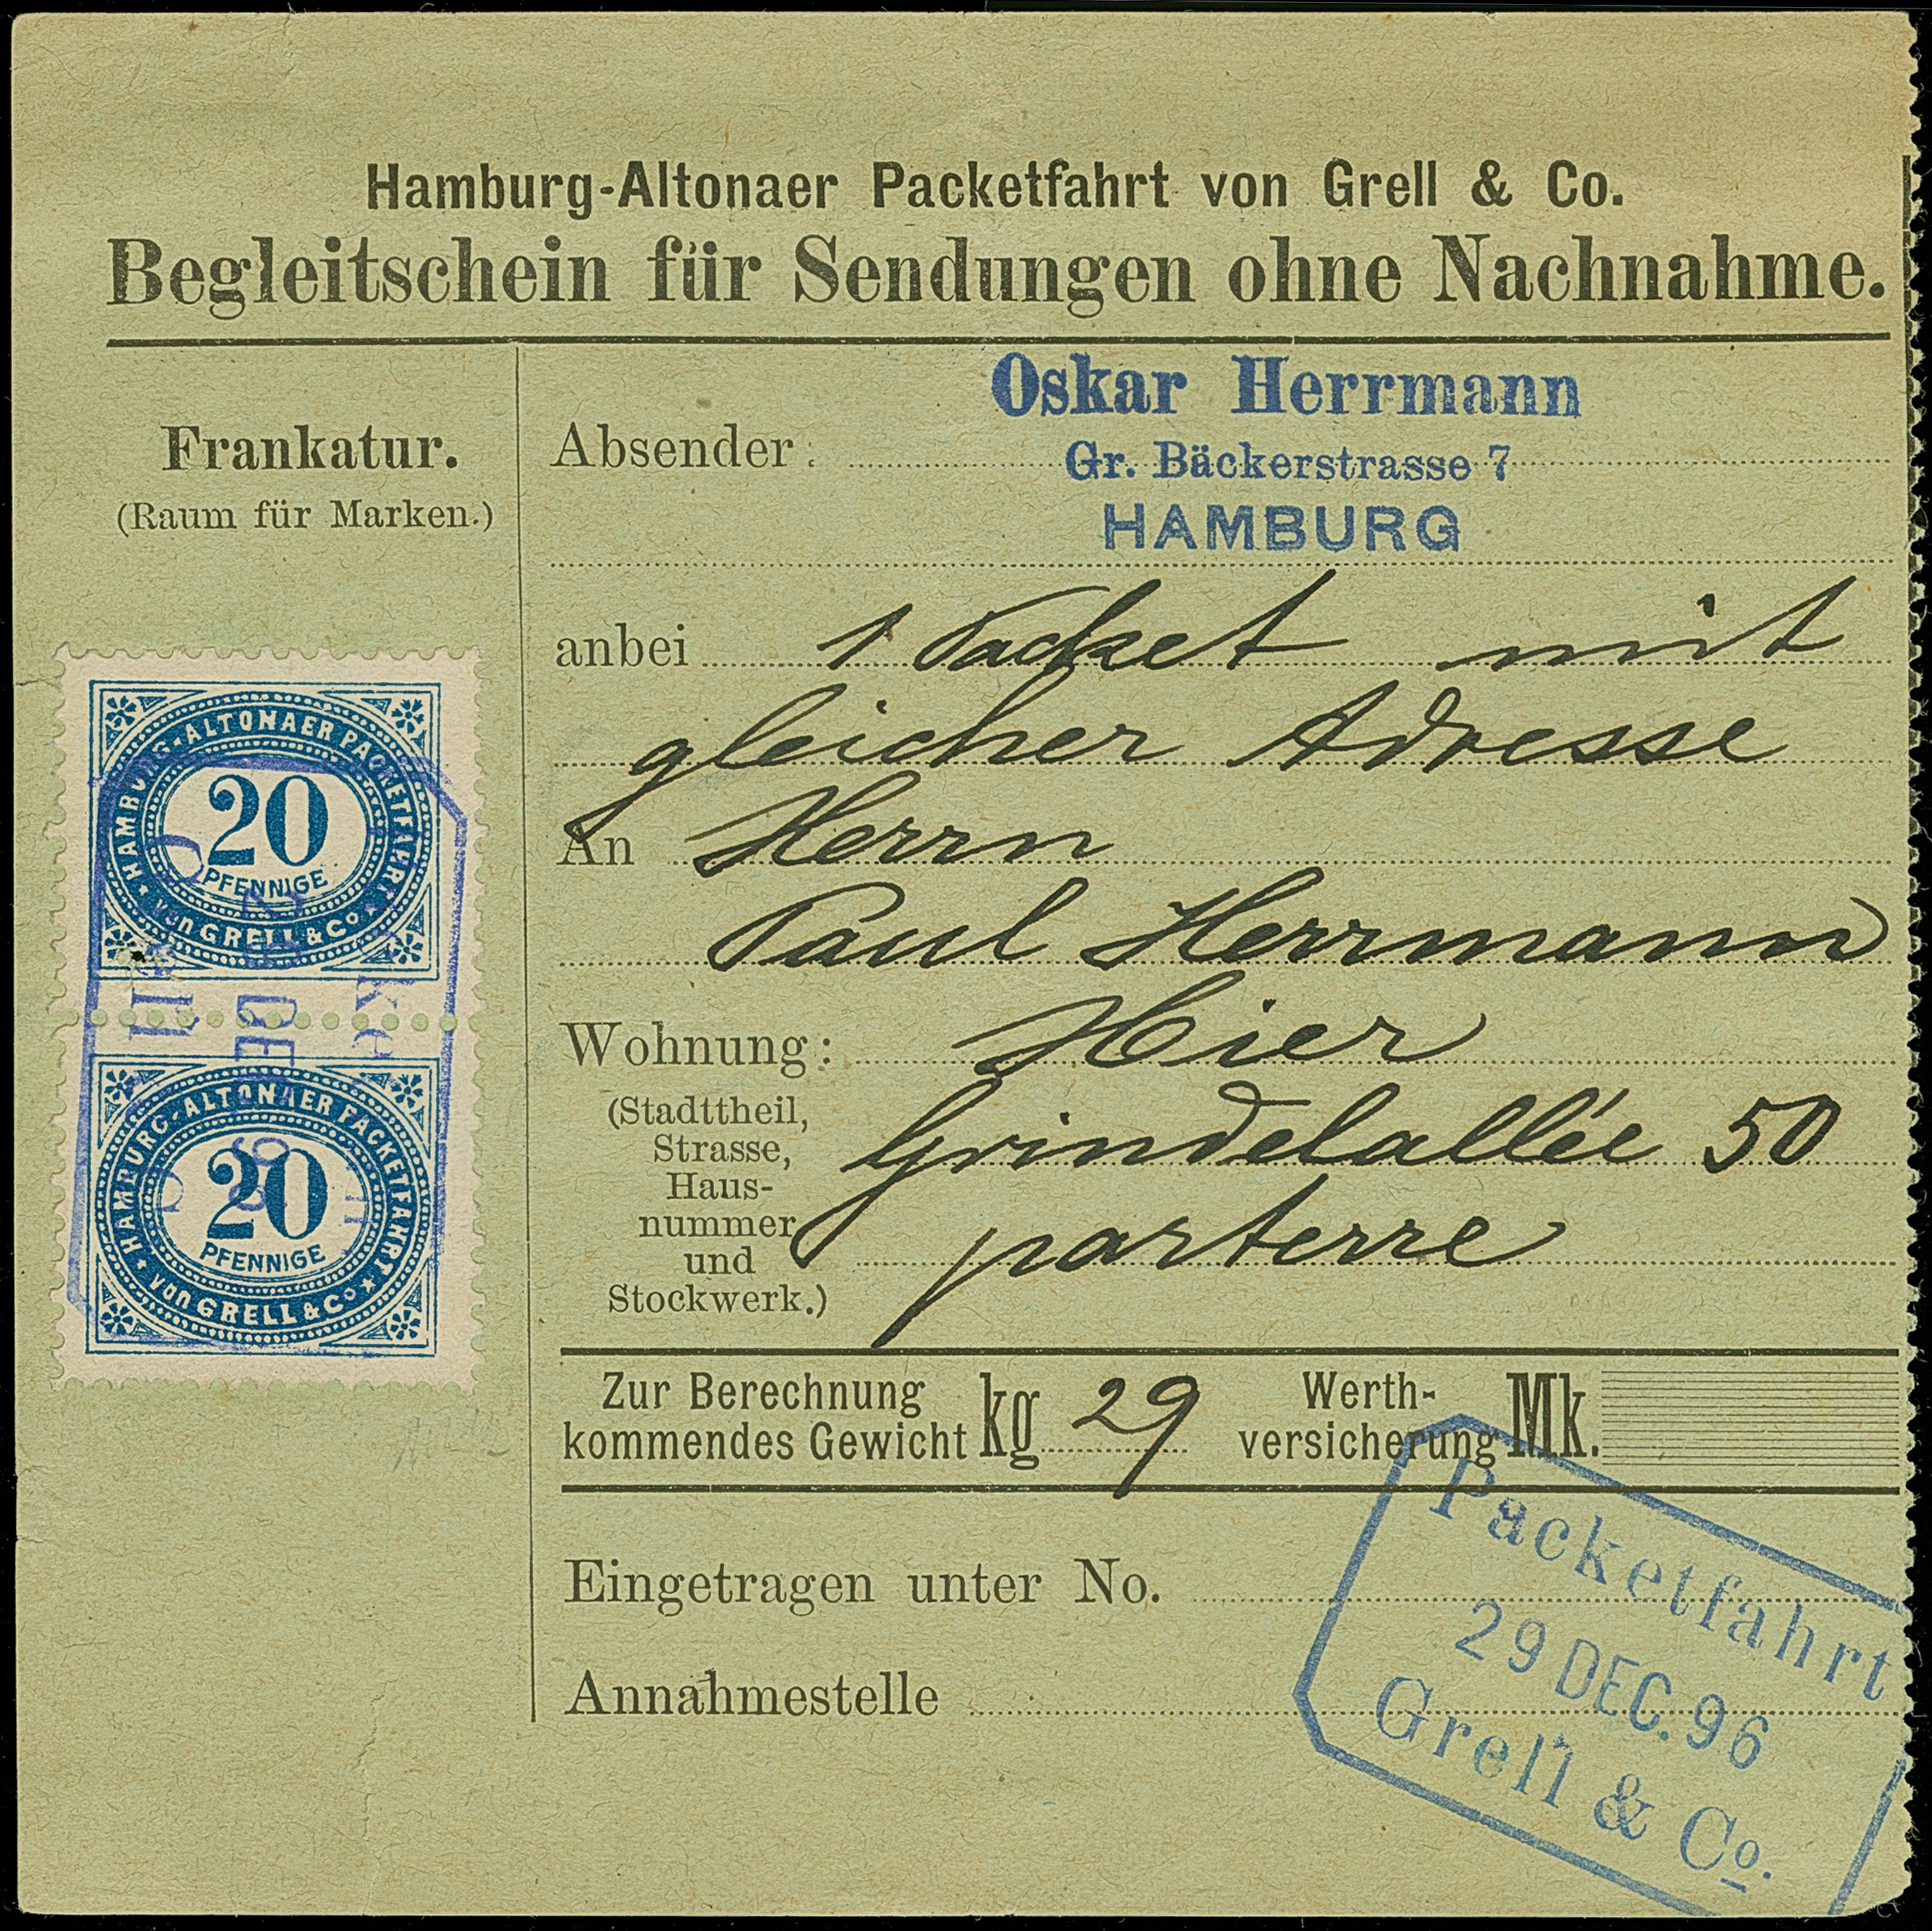 Hamburg-Altonaer Packetfahrt von Grell & Co.
Begleitschein für Sendungen ohne Nachnahme.
Frankatur.
(Raum für Marken.)
HAMBURG-ALTONAER PACKETFAHRT
20
PFENNIGE
von GRELL & Co
HAMBURG-ALTONAER PACKETFAHRT
20
PFENNIGE
von GRELL & Co
Oskar Herrmann
Absender: Gr. Bäckerstrasse 7
HAMBURG
anbei 1 Packet mit
gleicher Adresse
An Herrn
Paul Herrmann
Wohnung: Hier
(Stadttheil,
Strasse,
Haus-
nummer
und
Stockwerk.)
Grindelallée 50
parterre
Zur Berechnung
kommendes Gewicht kg 29
Werth-
versicherung Mk.
Eingetragen unter No.
Annahmestelle
Packetfahrt
29 DEC. 96
Grell & Co.